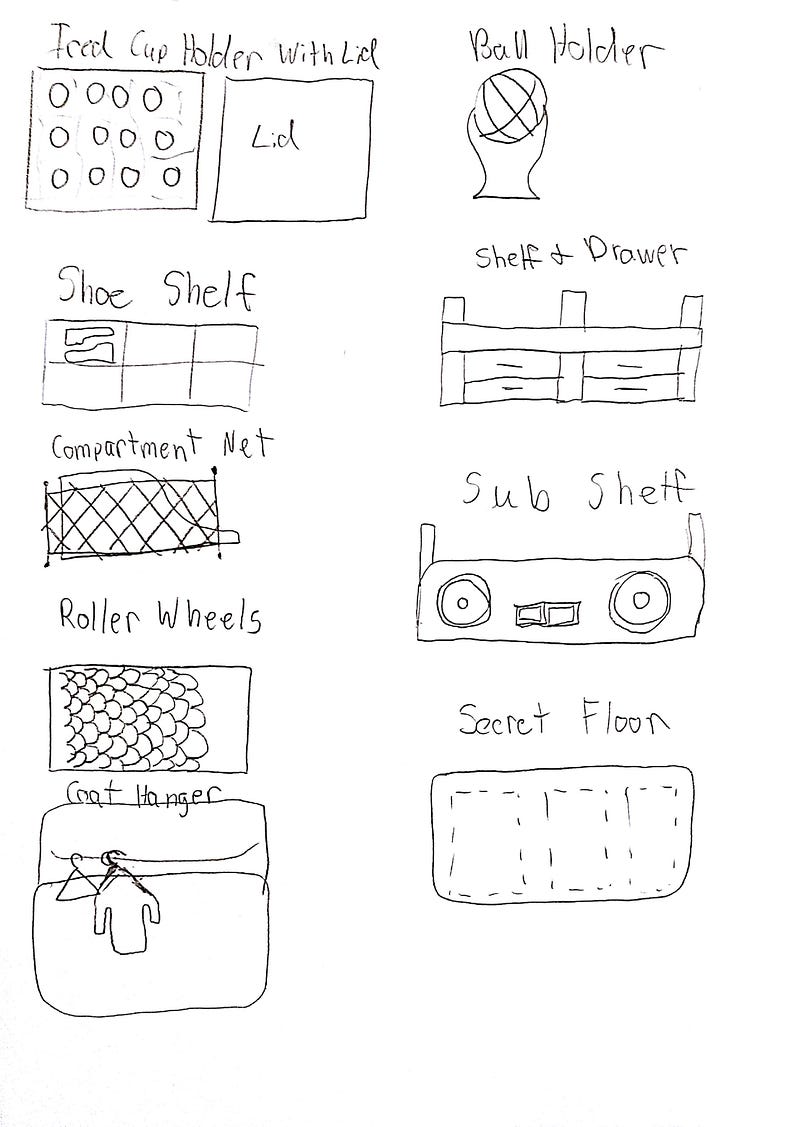 Iced Cup Holder With Lid
Lid
Shoe Shelf
Compartment Net
Roller Wheels
Coat Hanger
Ball Holder
Shelf & Drawer
Sub Shelf
Secret Floor